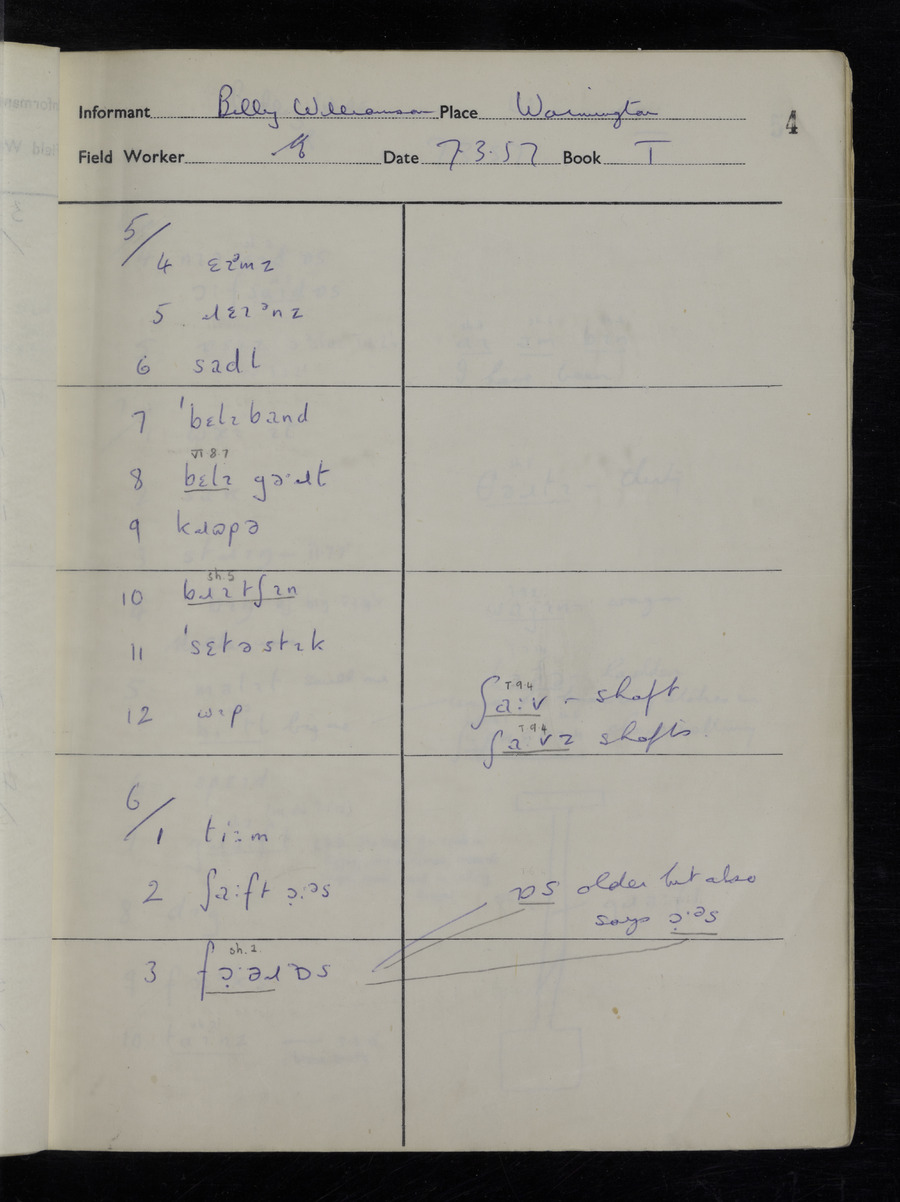 Informant Billy Williamson Place Warmington 4
Field Worker Date 7-3-57 Book I
5/
4 ɛɪᵊmz
5 ɹɛɪᵊnz
6 sadl
7 ˈbɛlɪband
VI 8 7
8 bɛlɪ gəˑɹt
9 kɹɷpə
sh.5
10 bɹɪtʃɪn
11 ˈsɛtəstɪk
12 wɪp
I 9 4
ʃaːv – shaft
I 9 4
ʃaːvz shafts.
6/
1 tiːm
2 ʃaːft ɔ̣ːəs
ɒs older but also
says ɔ̣ːəs
sh. 2
3 fɔ̣ːəɹ ɒs